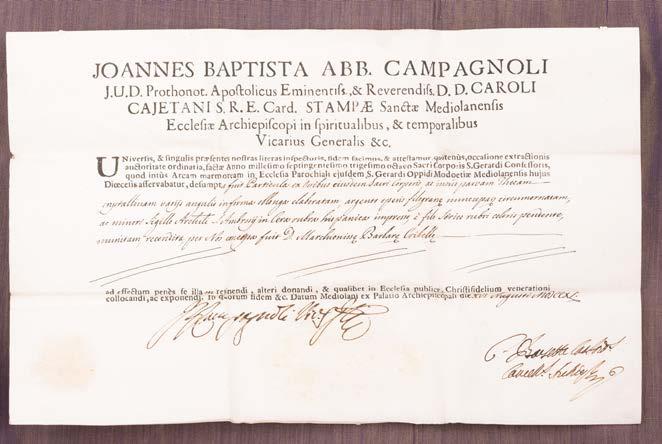 JOANNES BAPTISTA ABB. CAMPAGNOLI
J.U.D. Prothonot. Apostolicus Eminentiss., & Reverendiss. D. D. CAROLI
CAJETANI S. R. E. Card. STAMPÆ Sanctæ Mediolanensis
Ecclesiæ Archiepiscopi in spiritualibus, & temporalibus
Vicarius Generalis &c.
UNiversis, & singulis præsentes nostras literas inspecturis, fidem facimus, & attestamur, quatenùs, occasione extractionis
auctoritate ordinaria, factæ Anno millesimo septingentesimo trigesimo octavo Sacri Corporis S. Gerardi Confessoris,
quod intùs Arcam marmoream in Ecclesia Parochiali ejusdem S. Gerardi Oppidi Modoetiæ Mediolanensis hujus
Diœcesis asservabatur, desumpta fuit Particula ex Ossibus ejusdem Sacri Corporis, ac in parvam Thecam
crystallinam variis angulis elaboratam, argenteo circumornatam,
ac minori Sigillo in Cera rubra hispanica impresso è filo Serico rubri coloris pendente,
munitam recondita per Nos fuit D. Marchionissæ Barbaræ
ad effectum penès se illam retinendi, alteri donandi, & qualibet in Ecclesia publicæ Christifidelium venerationi
collocandi, ac exponendi. In quorum fidem &c. Datum Mediolani ex Palatio Archiepiscopali die Augusti